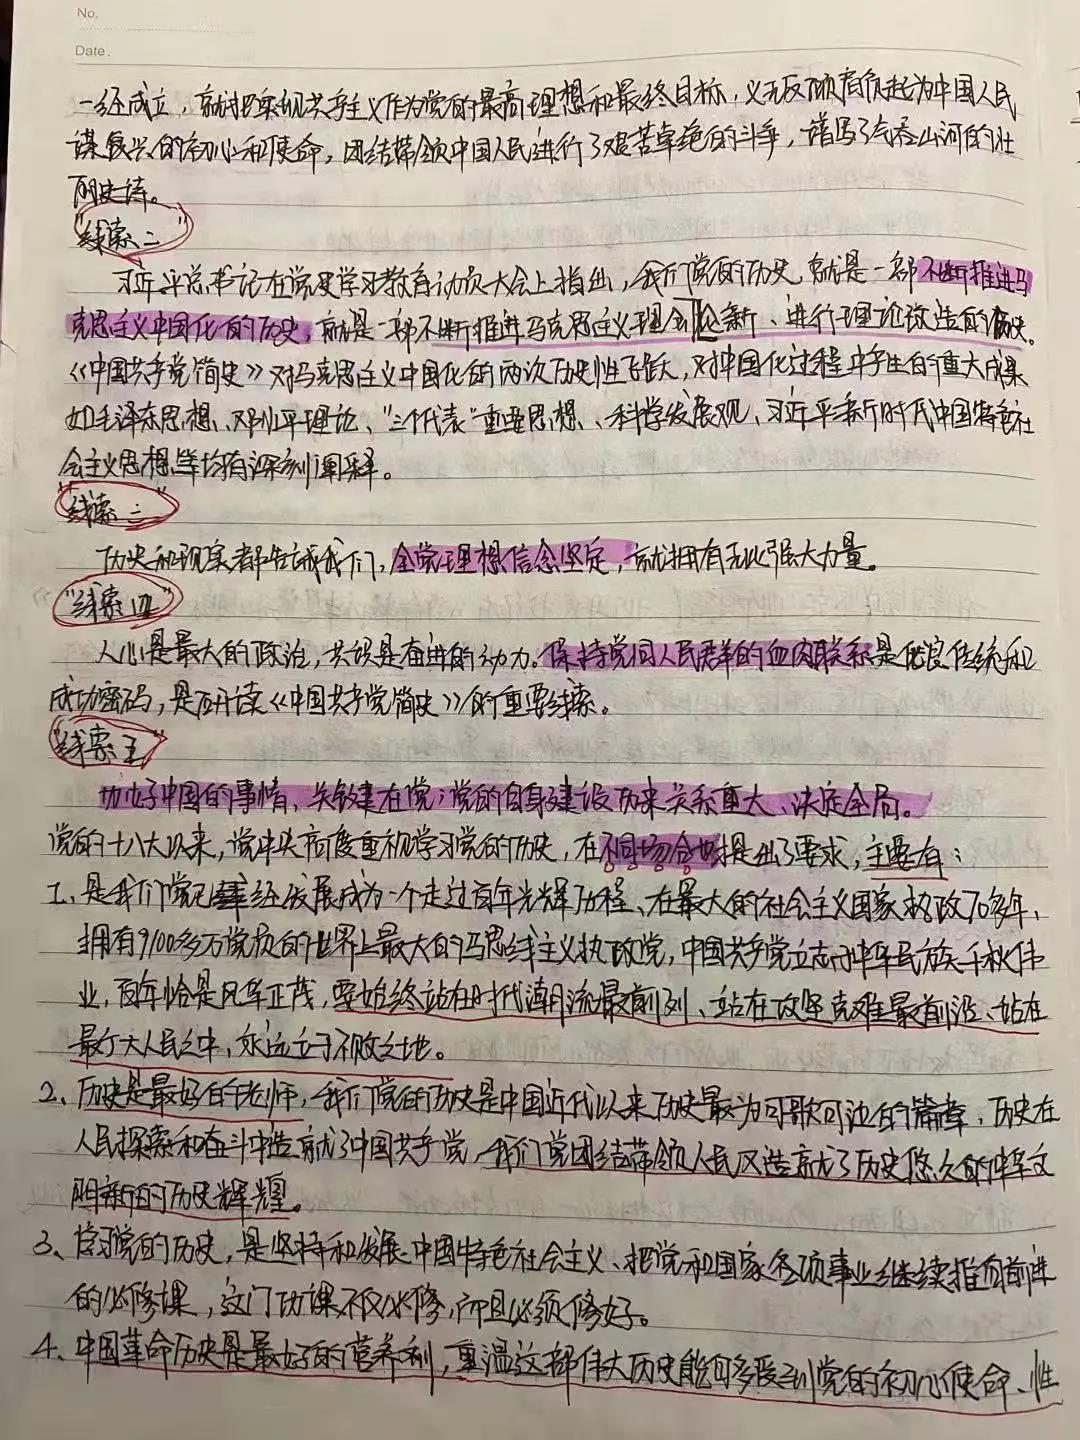 No.
Date.
一经成立，就把实现共产主义作为党的最高理想和最终目标，义无反顾肩负起为中国人民
谋复兴的初心和使命，团结带领中国人民进行了艰苦卓绝的斗争，谱写了气吞山河的壮
丽史诗。
"线索二"
习近平总书记在党史学习教育动员大会上指出，我们党的历史，就是一部不断推进马
克思主义中国化的历史，就是一部不断推进马克思主义理论创新、进行理论创造的历史。
《中国共产党简史》对马克思主义中国化的两次历史性飞跃，对中国化过程中产生的重大成果
如毛泽东思想、邓小平理论、"三个代表"重要思想、科学发展观、习近平新时代中国特色社
会主义思想等均有深刻阐释。
"线索三"
历史和现实都告诫我们，全党理想信念坚定，就拥有无比强大力量。
"线索四"
人心是最大的政治，共识是奋进的动力。保持党同人民群众的血肉联系是优良传统和
成功密码，是研读《中国共产党简史》的重要线索。
"线索五"
办好中国的事情，关键在党；党的自身建设历来关系重大、决定全局。
党的十八大以来，党中央高度重视学习党的历史，在不同场合也提出了要求，主要有：
1、是我们党已经发展成为一个走过百年光辉历程、在最大的社会主义国家执政70多年、
拥有9100多万党员的世界上最大的马克思主义执政党，中国共产党立志于中华民族千秋伟
业，百年恰是风华正茂，要始终站在时代潮流最前列、站在攻坚克难最前沿、站在
最广大人民之中，永远立于不败之地。
2、历史是最好的老师，我们党的历史是中国近代以来历史最为可歌可泣的篇章，历史在
人民探索和奋斗中造就了中国共产党，我们党团结带领人民又造就了历史悠久的中华文
明新的历史辉煌。
3、学习党的历史，是坚持和发展中国特色社会主义、把党和国家各项事业继续推向前进
的必修课，这门功课不仅必修，而且必须修好。
4、中国革命历史是最好的营养剂，重温这部伟大历史能够受到党的初心使命、性